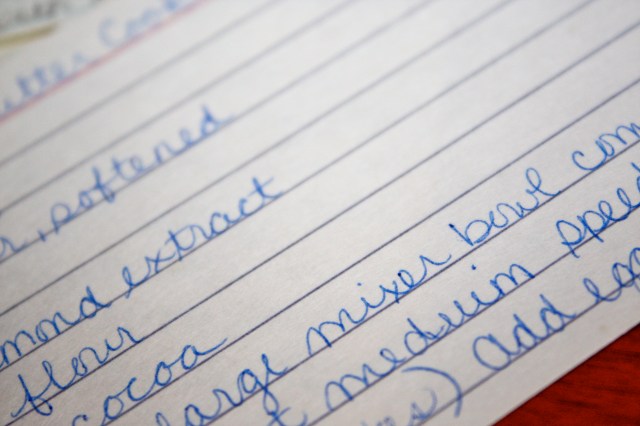 utter Cook
r, softened
mond extract
flour
cocoa
large mixer bowl com
t meduim speed
es) add egg